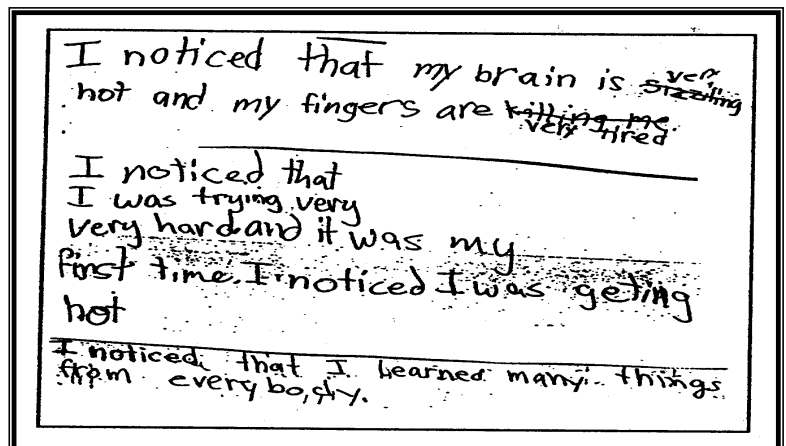 I noticed that my brain is very sizziling
hot and my fingers are killing me.
very tired
I noticed that
I was trying very
very hard and it was my
first time. I noticed I was geting
hot
I noticed that I learned many things
from everybody.